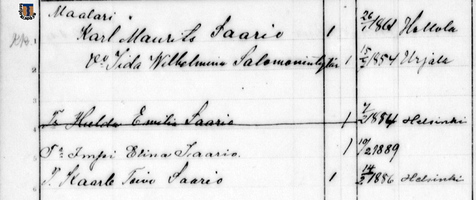 Maalari.
Karl Maurits Saario 1 26/1 1861 Hattula
Vo Iida Wilhelmina Salomonintytär 1 15/5 1854 Urjala
Tr Hulda Emilia Saario 1 1884 Helsinki
Tr Impi Elina Saario. 1 19/2 1889
P. Kaarlo Toivo Saario 1 14/2 1886 Helsinki